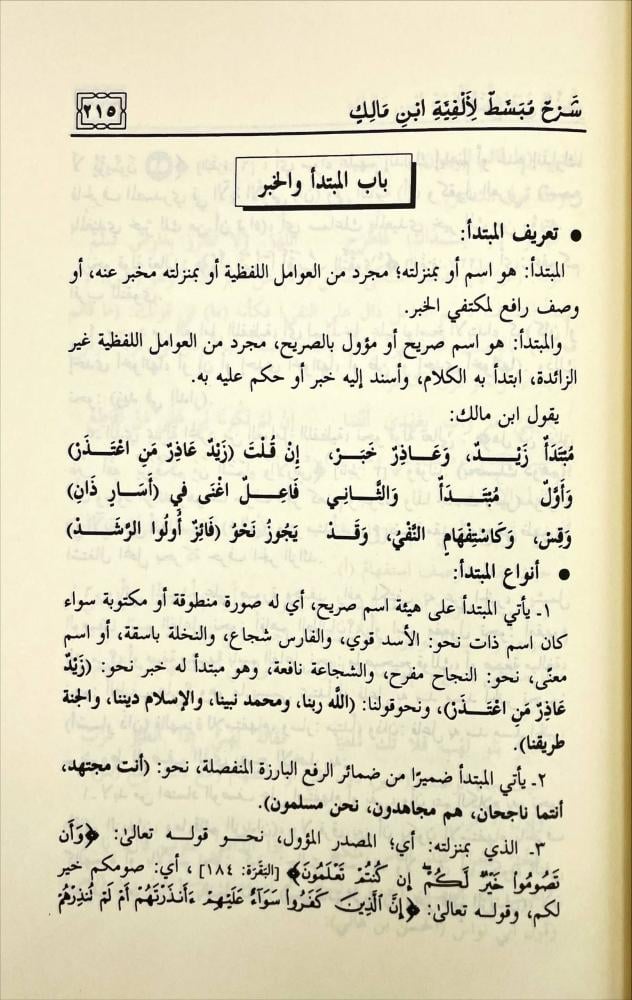 شَرْحٌ مُبَسَّطٌ لِأَلْفِيَّةِ ابْنِ مَالِكٍ ٢١٥
باب المبتدأ والخبر
● تعريف المبتدأ:
المبتدأ: هو اسم أو بمنزلته؛ مجرد من العوامل اللفظية أو بمنزلته مخبر عنه، أو
وصف رافع لمكتفي الخبر.
والمبتدأ: هو اسم صريح أو مؤول بالصريح، مجرد من العوامل اللفظية غير
الزائدة، ابتدأ به الكلام، وأسند إليه خبر أو حكم عليه به.
يقول ابن مالك:
مُبْتَدَأٌ زَيْـــدٌ، وَعَـاذِرٌ خَبَـرْ، إِنْ قُلْتَ (زَيْدٌ عَاذِرٌ مَنِ اعْتَـــذَرْ)
وَأَوَّلٌ مُبْتَـــدَأٌ وَالثَّـانِـي فَاعِـــلٌ اغْنَى فِي (أَسَـارٍ ذَانِ)
وَقِسْ، وَكَاسْتِفْهَامٍ النَّفْيُ، وَقَـــدْ يَجُوزُ نَحْوُ (فَائِزٌ أُولُوا الرَّشَـــدْ)
● أنواع المبتدأ:
١ـ يأتي المبتدأ على هيئة اسم صريح، أي له صورة منطوقة أو مكتوبة سواء
كان اسم ذات نحو: الأسد قوي، والفارس شجاع، والنخلة باسقة، أو اسم
معنًى، نحو: النجاح مفرح، والشجاعة نافعة، وهو مبتدأ له خبر نحو: (زَيْدٌ
عَاذِرٌ مَنِ اعْتَـــذَرْ)، ونحوقولنا: (اللَّه ربنا، ومحمد نبينا، والإسلام ديننا، والجنة
طريقنا).
٢ـ يأتي المبتدأ ضميرًا من ضمائر الرفع البارزة المنفصلة، نحو: (أنت مجتهد،
أنتما ناجحان، هم مجاهدون، نحن مسلمون).
٣ـ الذي بمنزلته: أي؛ المصدر المؤول، نحـو قولـه تعالىٰ: ﴿وَأَن
تَصُومُوا خَيْرٌ لَّكُمْ إِن كُنتُمْ تَعْلَمُونَ﴾ [البَقَرَة: ١٨٤]، أي: صومكم خير
لكم، وقولـه تعالىٰ: ﴿إِنَّ ٱلَّذِينَ كَفَرُوا سَوَآءٌ عَلَيْهِمْ ءَأَنذَرْتَهُمْ أَمْ لَمْ تُنذِرْهُمْ